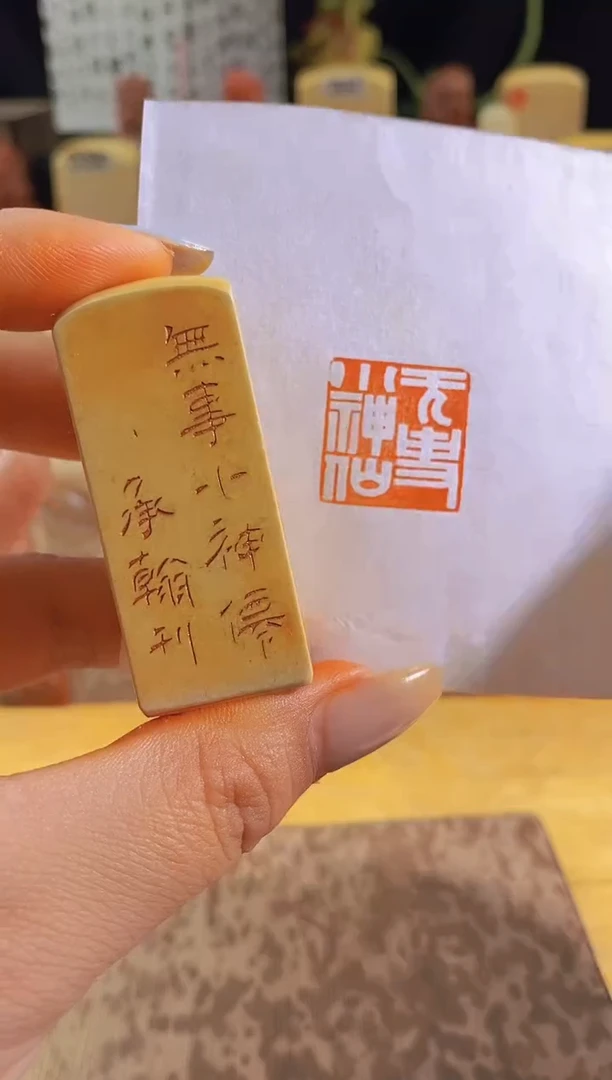 無事小神僊
承翰刊
无事
小神仙